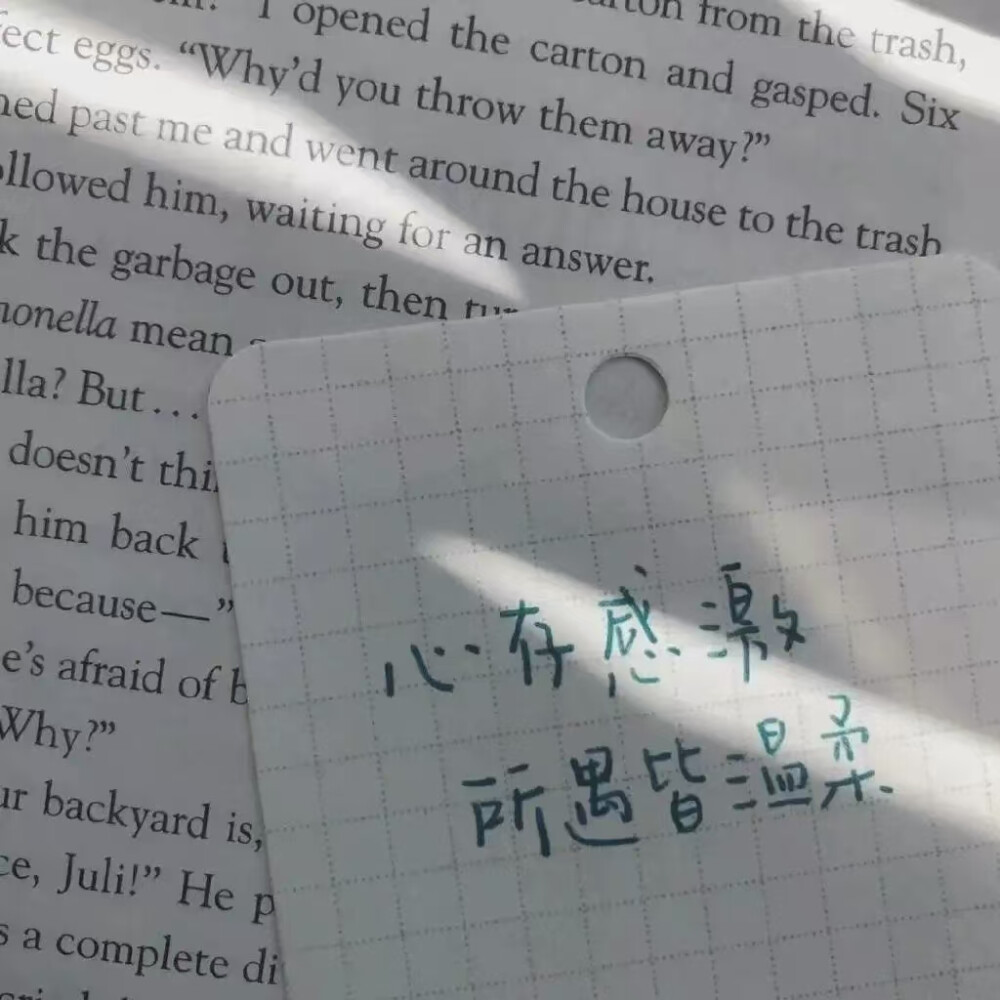 I opened the carton and gasped. Six
from the trash,
eggs. “Why’d you throw them away?”
past me and went around the house to the trash
him, waiting for an answer.
the garbage out, then
mean
But...
doesn’t
him back
because—”
afraid of
Why?”
backyard is,
Juli!” He
a complete
心存感激
所遇皆温柔.